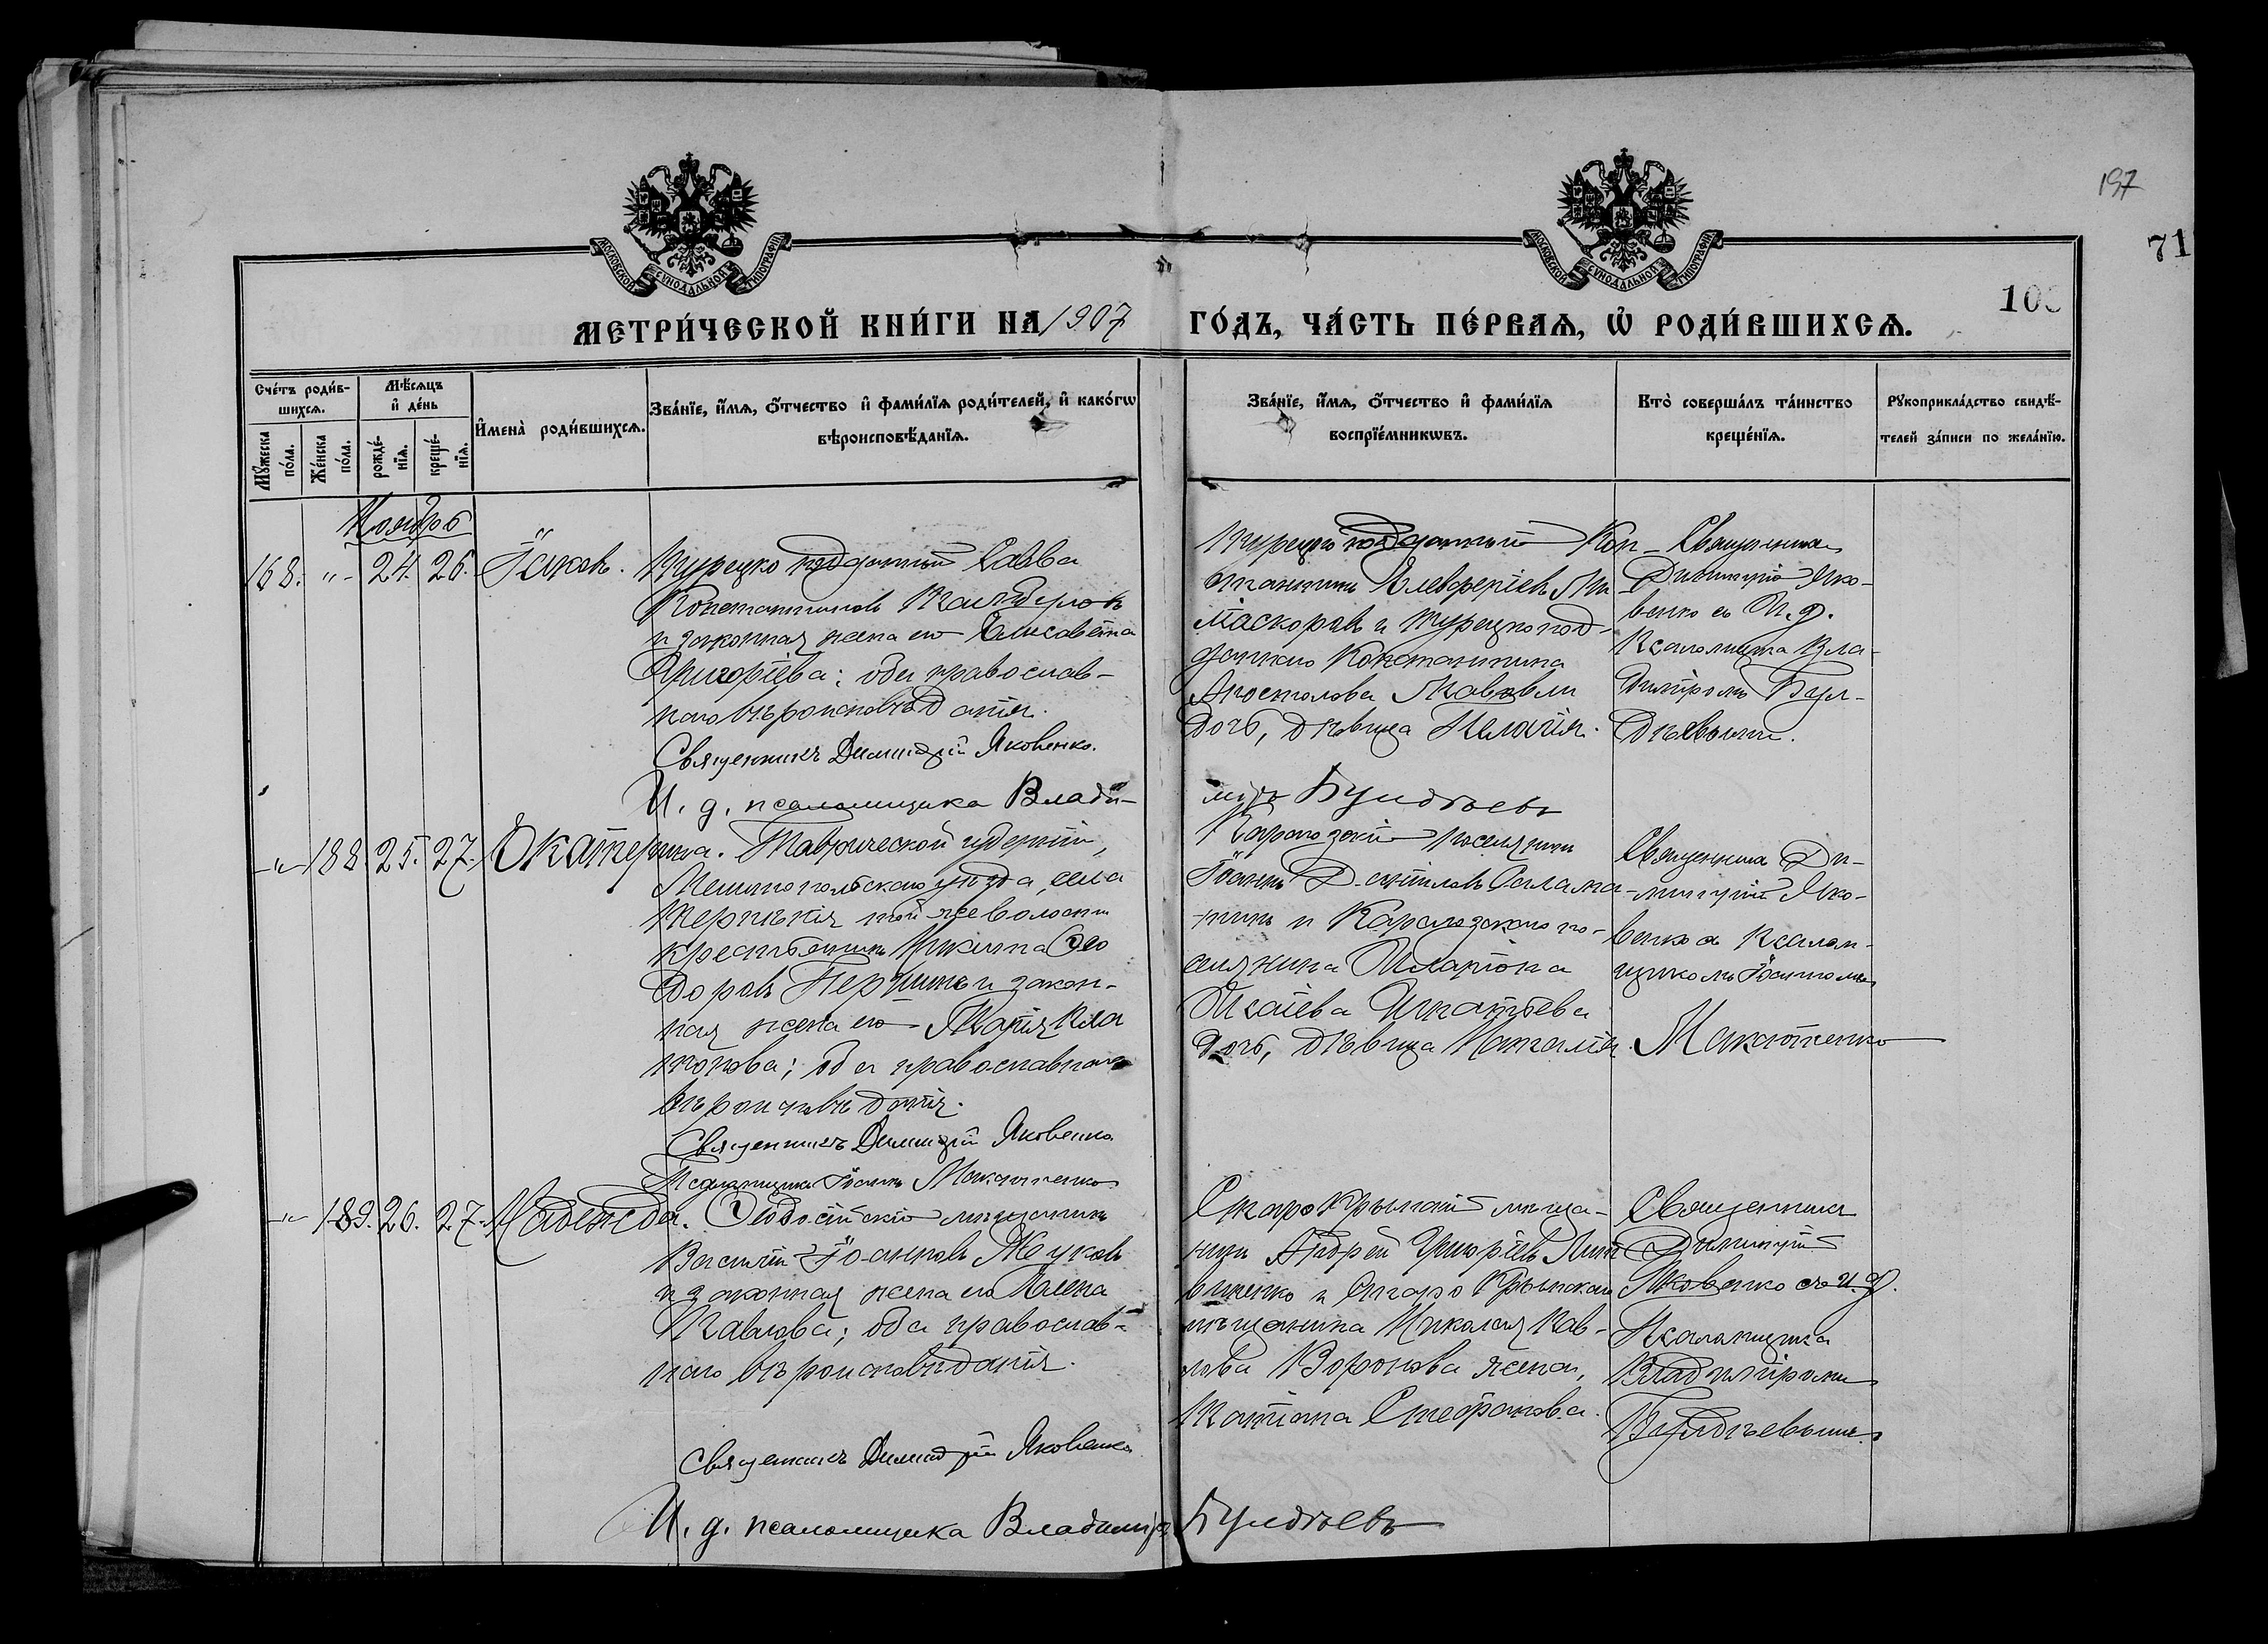 197
71
МОСКОВСКОЙ СУНОДАЛЬНОЙ ТИПОГРАФІИ
МОСКОВСКОЙ СУНОДАЛЬНОЙ ТИПОГРАФІИ
10
МЕТРИ́ЧЕСКОЙ КНИ́ГИ НА 1907 ГО́ДЪ, ЧА́СТЬ ПЕ́РВАѦ, Ѡ҆ РОДИ́ВШИХСѦ.
Сче́тъ роди́в-
шихсѧ.
Мꙋ́жеска
по́ла.
Же́нска
по́ла.
Мѣ́сѧцъ
и҆ де́нь
рожде́-
нїѧ.
креще́-
нїѧ.
И҆мена̀ роди́вшихсѧ.
Зва́нїе, и҆́мѧ, ѻ҆́тчество и҆ фами́лїѧ роди́телей, и҆ како́гѡ
вѣроисповѣ́данїѧ.
Зва́нїе, и҆́мѧ, ѻ҆́тчество и҆ фами́лїѧ
воспрїе́мникѡвъ.
Кто̀ соверша́лъ та́инство
креще́нїѧ.
Рꙋкоприкла́дство свидѣ́-
телей за́писи по жела́нїю.
Ноябрь
168. „- 24. 26. Іаковъ.
Турецко подданный Савва
Константиновъ
и законная жена его Елисавета
Григоріева; оба православ-
наго вѣроисповѣданія.
Священникъ Димитрій Яковенко.
И. д. псаломщика Влади-
міръ Булдѣевъ
Турецко подданный Кон-
стантинъ Елевферіевъ
и турецкопод-
даннаго Константина
Апостолова
дочь, дѣвица Пелагія.
Священникъ
Димитрій Яко-
венко съ И. д.
Псаломщика Вла-
диміромъ Бул-
дѣевымъ.
-„- 188. 25. 27. Екатерина.
Таврической губерніи,
Мелитопольскаго уѣзда, села
той же волости
крестьянинъ Никита Ѳео
доровъ и закон-
ная жена его Марія
оба православнаго
вѣроисповѣданія.
Священникъ Димитрій Яковенко
Псаломщикъ Іоаннъ Макотченко
поселянинъ
Іоаннъ Даниловъ
и по-
селянина Иларіона
Исаіева Игнатьева
дочь, дѣвица Наталія.
Священникъ Ди-
митрій Яко-
венко съ псалом-
щикомъ Іоанномъ
-„- 189. 26. 27. Надежда.
Ѳеодосійскій мѣщанинъ
Василій Іоанновъ Жуковъ
и законная жена его Елена
Павлова; оба православ-
наго вѣроисповѣданія.
Священникъ Димитрій Яковенко
И. д. псаломщика Владиміръ Булдѣевъ
Старо Крымскій мѣща-
нинъ Андрей Григоріевъ
и Старо Крымскаго
мѣщанина Николая Пав-
лова Воронова жена,
Татіана Стефанова.
Священникъ
Димитрій
Яковенко съ и. д.
Псаломщика
Владиміромъ
Булдѣевымъ.